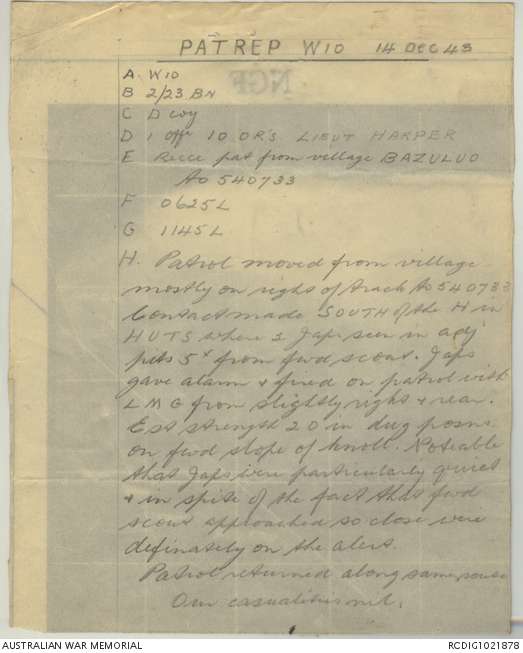 PATREP W10 14 DEC 43
A W10
B 2/23 BN
C D coy
D 1 Offr 10 ORS LIEUT HARPER
E Recce pat from village BAZULUO
to 540733
F 0625L
G 1145L
H. Patrol moved from village
mostly on right of track to 540733
Contact made SOUTH of the H in
HUTS where 2 Japs seen in adj
pits 5x from fwd scout. Japs
gave alarm & fired on patrol with
LMG from slightly right & rear.
Est strength 20 in dug posns
on fwd slope of knoll. Noteable
that Japs were particularly quiet
& in spite of the fact that fwd
scout approached so close were
definately on the alert.
Patrol returned along same route
Our casualities nil.
AUSTRALIAN WAR MEMORIAL RCDIG1021878